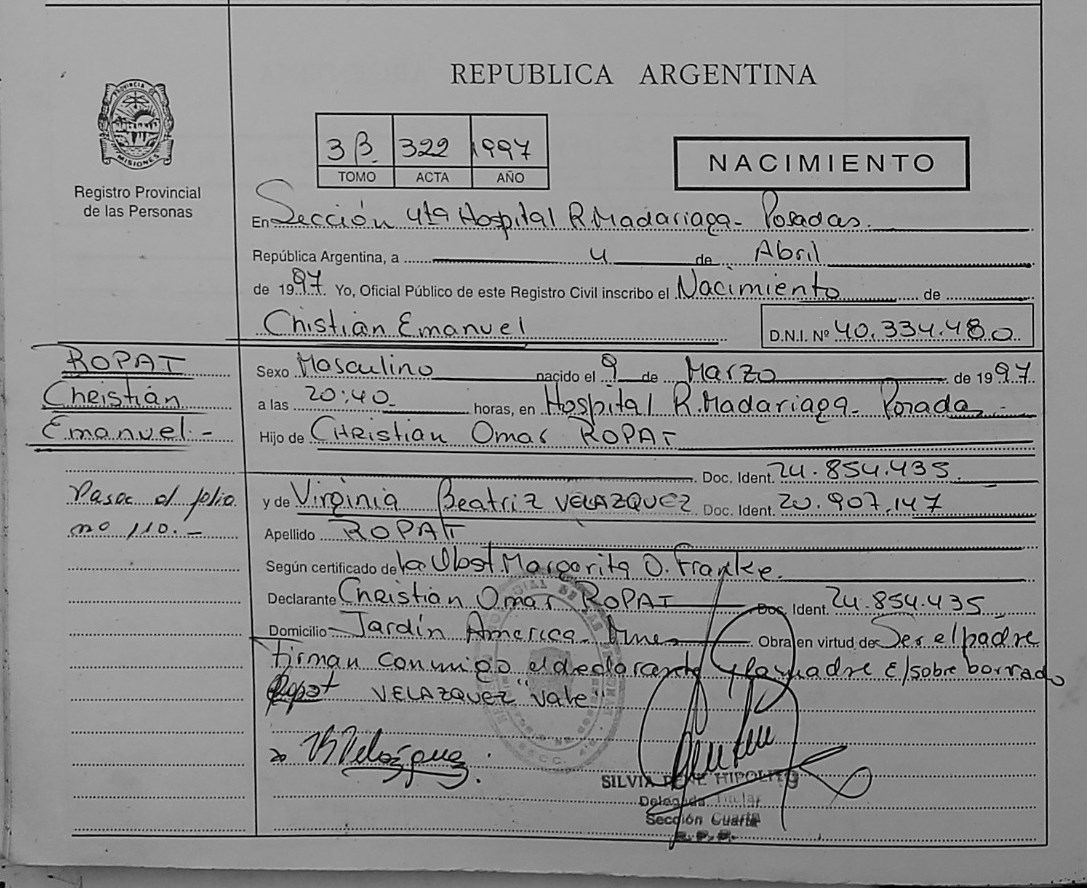 REPUBLICA ARGENTINA
PROVINCIA DE MISIONES
Registro Provincial
de las Personas
3 B. 322 1997
TOMO ACTA AÑO
NACIMIENTO
En Sección 4ta Hospital R. Madariaga - Posadas.
República Argentina, a 4 de Abril
de 1997. Yo, Oficial Público de este Registro Civil inscribo el Nacimiento de
Chistian Emanuel D.N.I. Nº 40.334.480
ROPAT
Christián
Emanuel -
Sexo Masculino nacido el 9 de Marzo de 1997
a las 20:40 horas, en Hospital R. Madariaga - Posadas -
Hijo de Christian Omar ROPAT
Doc. Ident. 24.854.435.
y de Virginia Beatriz VELAZQUEZ Doc. Ident. 20.907.147
Pasac al folio
no 110. -
Apellido ROPAT
Según certificado de la Obst. Margarita O. Franke.
Declarante Christián Omar ROPAT Doc. Ident. 24.854.435
Domicilio Jardín America - Obra en virtud de Ser el padre
firman conmigo el declarante y la madre E/sobre borrado
VELAZQUEZ "Vale"
VBVelázquez.
SILVIA HIPOLITO
Delegada Titular
Sección Cuarta